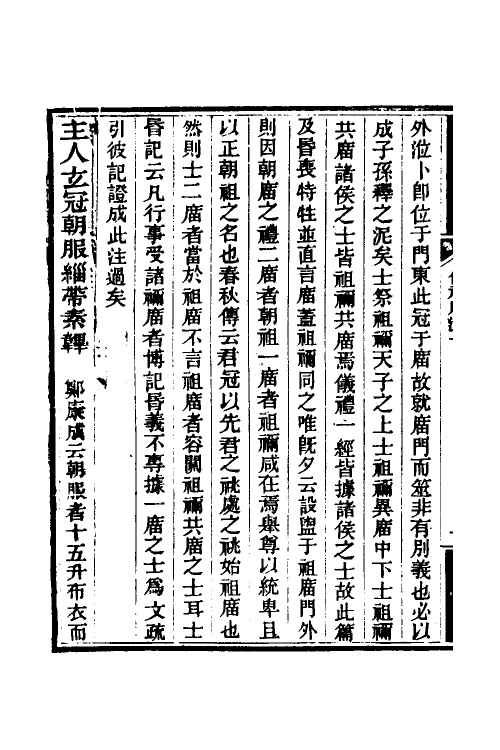 外涖卜卽位于門東此冠于廟故就廟門而筮非有別義也必以
成子孫釋之泥矣士祭祖禰天子之上士祖禰異廟中下士祖禰
共廟諸侯之士皆祖禰共廟焉儀禮一經皆據諸侯之士故此篇
及昏喪特牲並直言廟蓋祖禰同之唯旣夕云設盥于祖廟門外
則因朝廟之禮二廟者朝祖一廟者祖禰咸在焉舉尊以統卑且
以正朝祖之名也春秋傳云君冠以先君之祧處之祧始祖廟也
然則士二廟者當於祖廟不言祖廟者容關祖禰共廟之士耳士
昏記云凡行事受諸禰廟者博記昏義不專據一廟之士爲文疏
引彼記證成此注過矣
主人玄冠朝服緇帶素韠 鄭康成云朝服者十五升布衣而